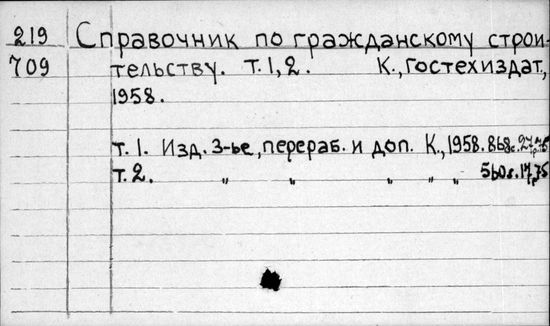 219 Справочник по гражданскому строи-
709 тельству. т.1,2. К., Гостехиздат,
1958.
т.1. Изд. 3-ье, перераб. и доп. К., 1958. 868с. 27р.75
т.2. " " " " " 560с. 17р.75